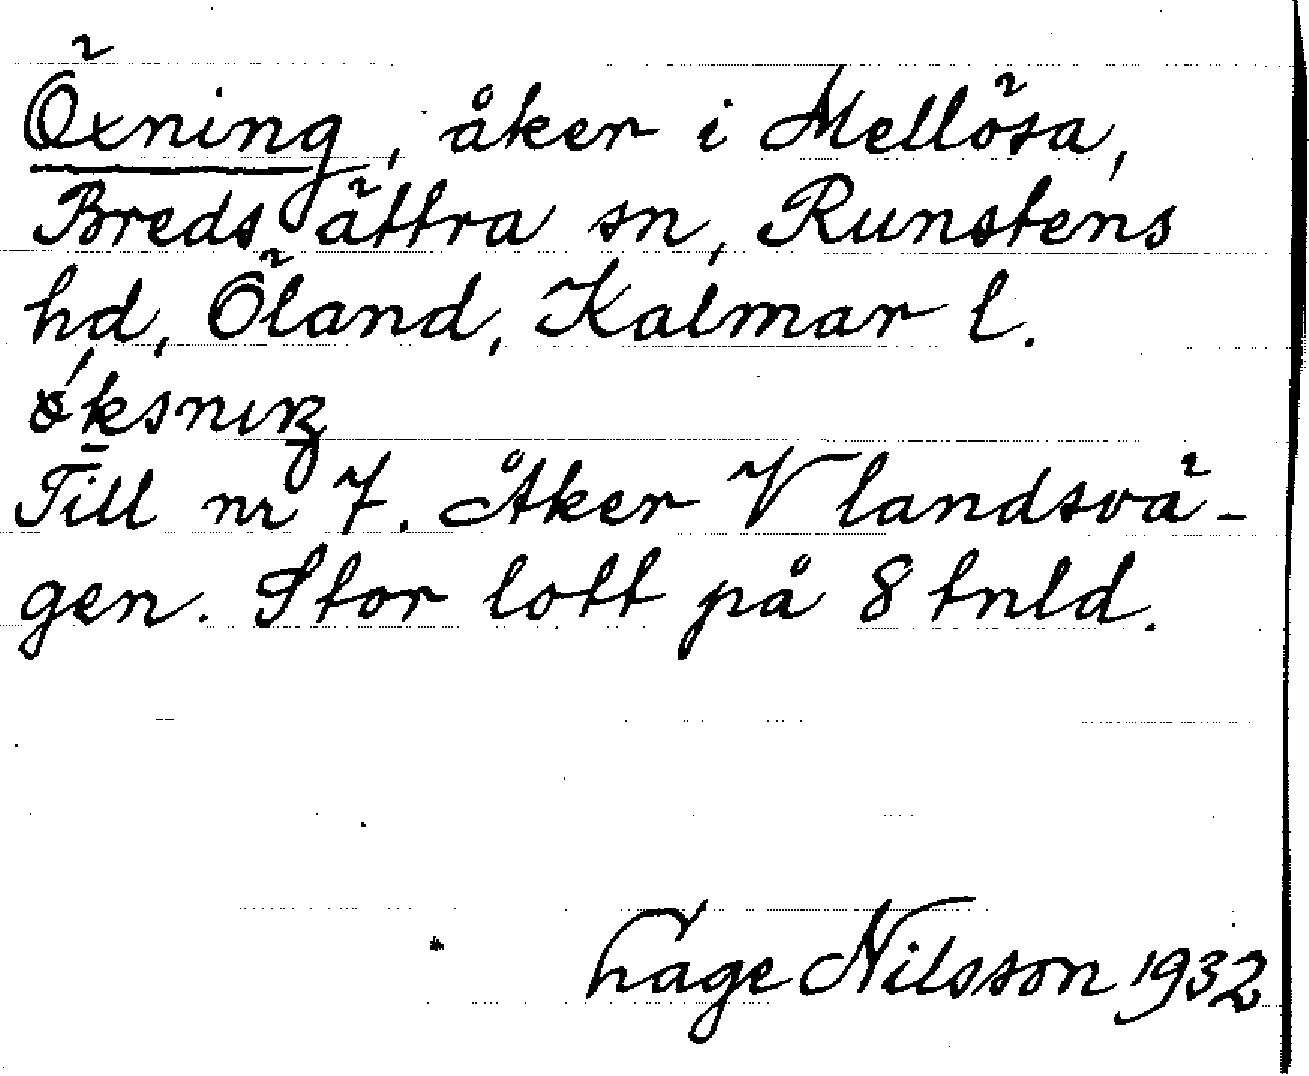 Öxning, åker i Mellösa,
Bredsättra sn, Runstens
hd, Öland, Kalmar l.
Till nr 7. Åker V landsvä-
gen. Stor lott på 8 tnld.
Lage Nilsson 1932